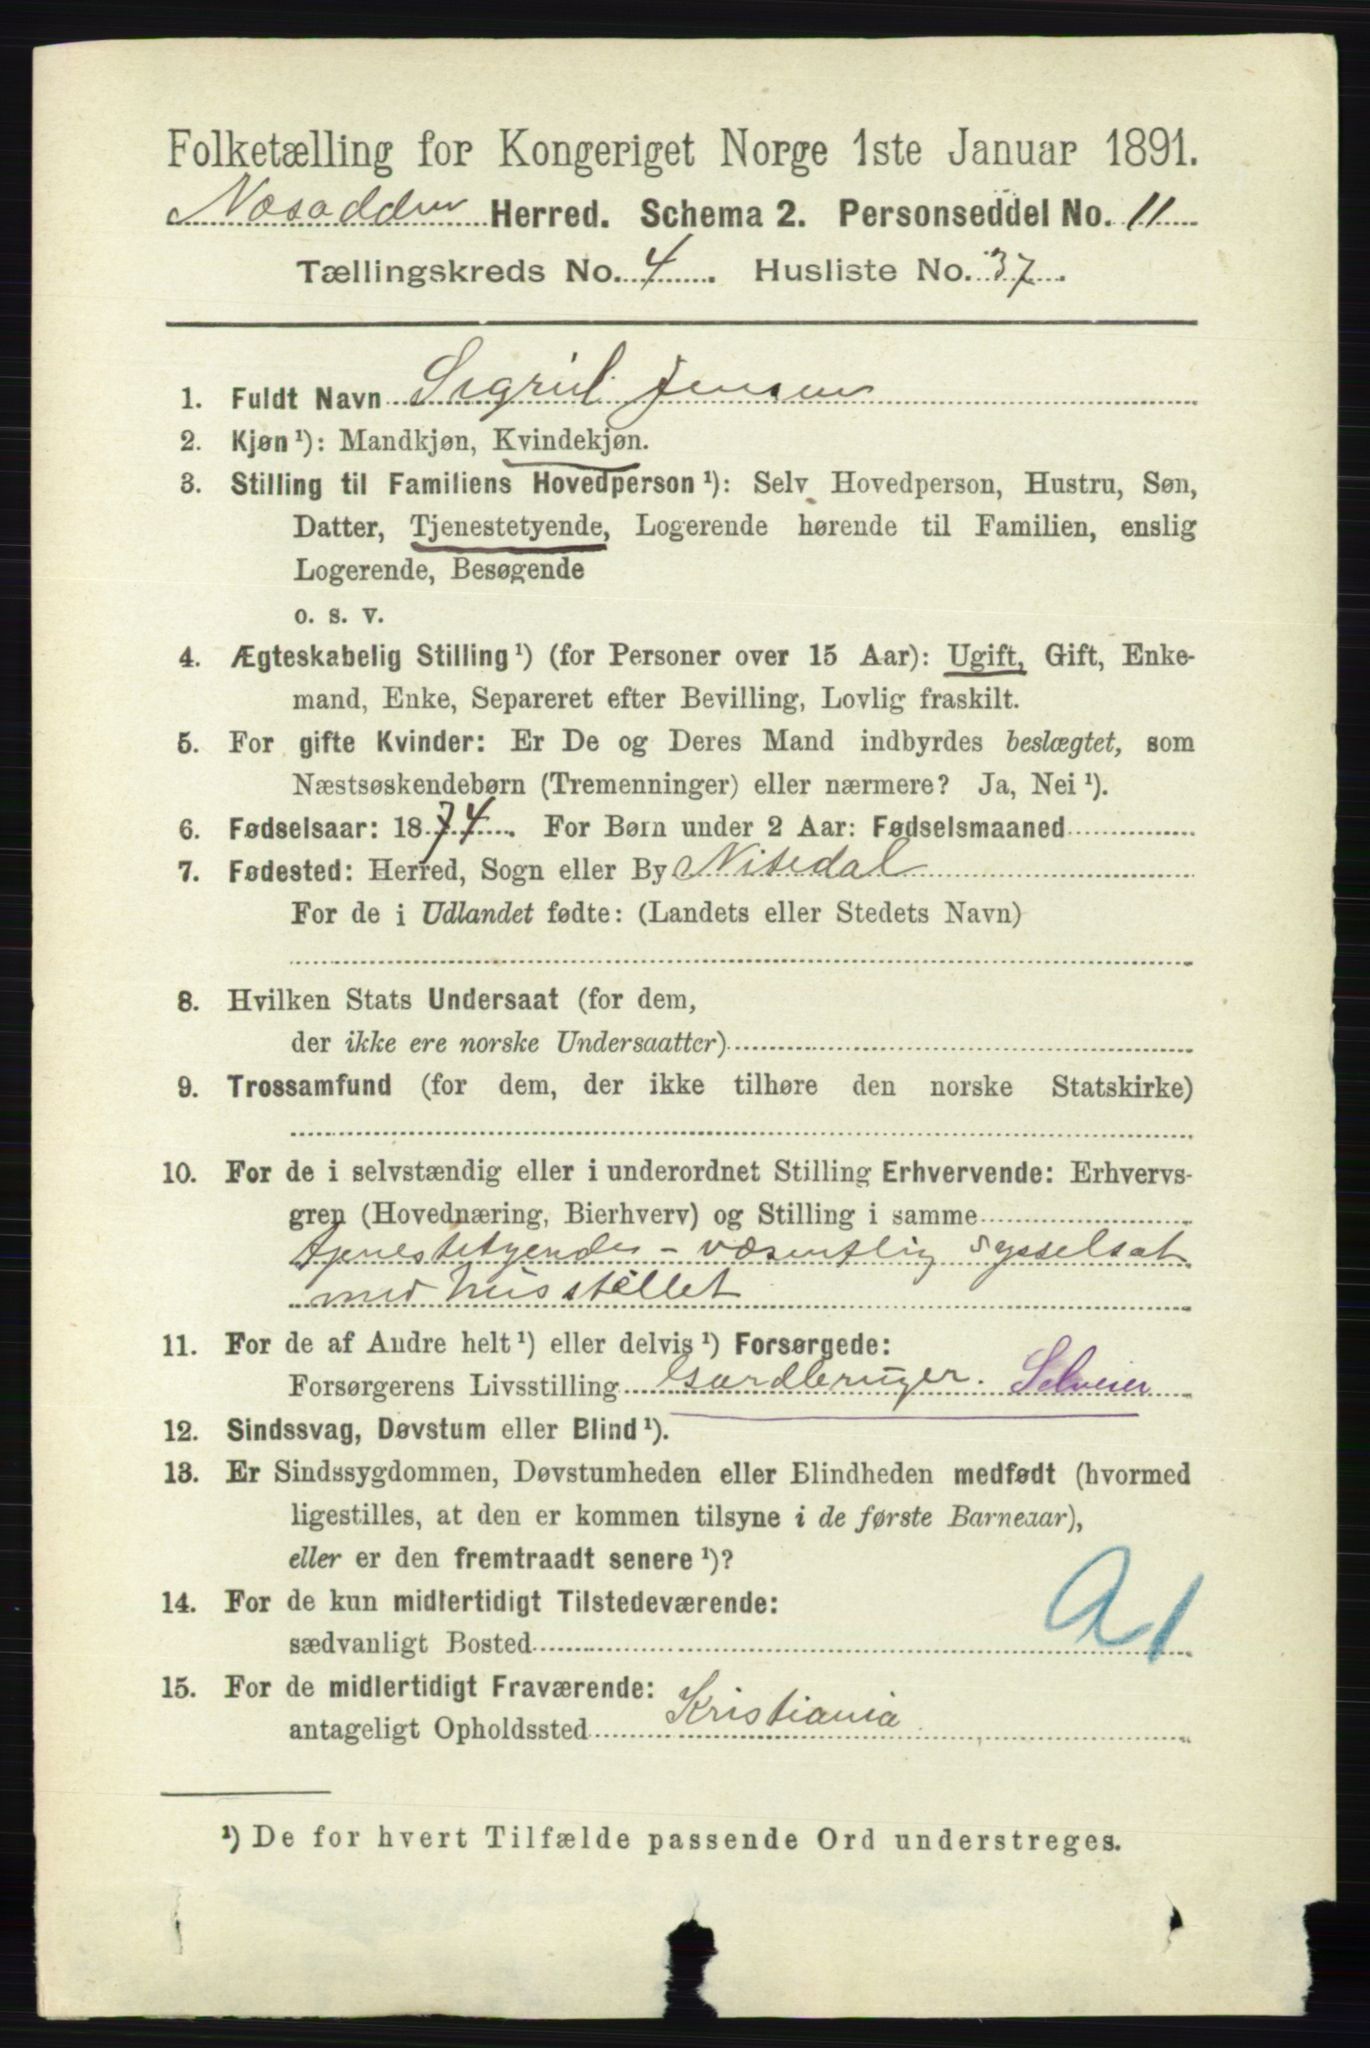 Folketælling for Kongeriget Norge 1ste Januar 1891.
Næsodden Herred. Schema 2. Personseddel No. 11
Tællingskreds No. 4. Husliste No. 37.
1. Fuldt Navn Sigrid Jensen
2. Kjøn¹): Mandkjøn, Kvindekjøn.
3. Stilling til Familiens Hovedperson¹): Selv Hovedperson, Hustru, Søn,
Datter, Tjenestetyende, Logerende hørende til Familien, enslig
Logerende, Besøgende
o. s. v.
4. Ægteskabelig Stilling¹) (for Personer over 15 Aar): Ugift, Gift, Enke-
mand, Enke, Separeret efter Bevilling, Lovlig fraskilt.
5. For gifte Kvinder: Er De og Deres Mand indbyrdes beslægtet, som
Næstsøskendebørn (Tremenninger) eller nærmere? Ja, Nei¹).
6. Fødselsaar: 1874. For Børn under 2 Aar: Fødselsmaaned
7. Fødested: Herred, Sogn eller By Nitedal
For de i Udlandet fødte: (Landets eller Stedets Navn)
8. Hvilken Stats Undersaat (for dem,
der ikke ere norske Undersaatter)
9. Trossamfund (for dem, der ikke tilhøre den norske Statskirke)
10. For de i selvstændig eller i underordnet Stilling Erhvervende: Erhvervs-
gren (Hovednæring, Bierhverv) og Stilling i samme
tjenestetyende - væsentlig sysselsat
med husstellet
11. For de af Andre helt¹) eller delvis¹) Forsørgede:
Forsørgerens Livsstilling Gardbruger. Selveier
12. Sindssvag, Døvstum eller Blind¹).
13. Er Sindssygdommen, Døvstumheden eller Blindheden medfødt (hvormed
ligestilles, at den er kommen tilsyne i de første Barneaar),
eller er den fremtraadt senere¹)?
14. For de kun midlertidigt Tilstedeværende:
sædvanligt Bosted
A 1
15. For de midlertidigt Fraværende:
antageligt Opholdssted Kristiania
¹) De for hvert Tilfælde passende Ord understreges.